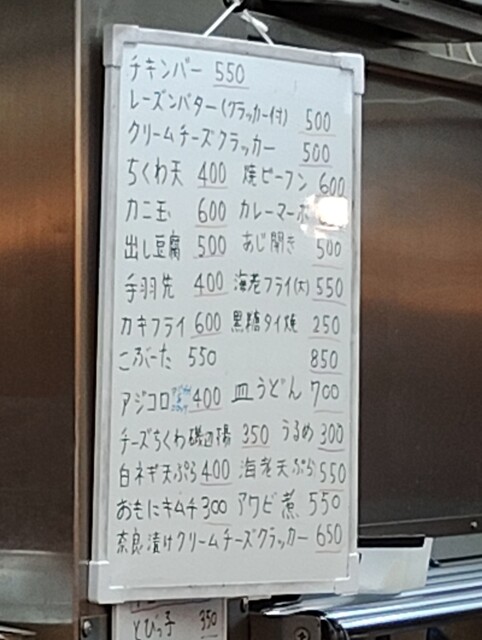 チキンバー 550
レーズンバター(クラッカー付) 500
クリームチーズクラッカー 500
ちくわ天 400 焼ビーフン 600
カニ玉 600 カレーマーボ
出し豆腐 500 あじ開き 500
手羽先 400 海老フライ(大) 550
カキフライ 600 黒糖タイ焼 250
こぶーた 550 850
アジコロ 400 皿うどん 700
チーズちくわ磯辺揚 350 うるめ 300
白ネギ天ぷら 400 海老天ぷら 550
おもにキムチ 300 アワビ煮 550
奈良漬けクリームチーズクラッカー 650
とびっ子 350